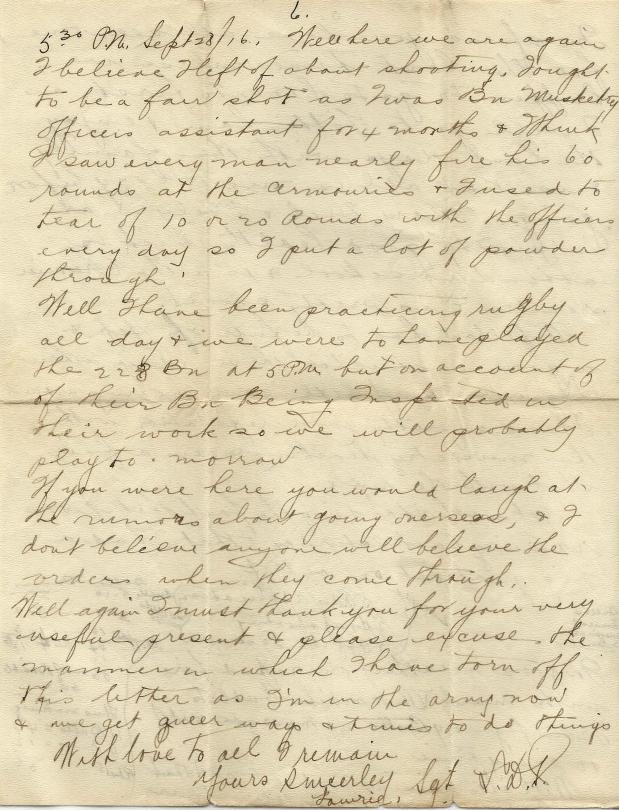 6.
5³⁰ P.M. Sept 28/16. Well here we are again
I believe I left of about shooting. I ought
to be a fair shot as I was Bn Musketry
officers assistant for 4 months & I think
I saw every man nearly fire his 60
rounds at the armouries & I used to
tear of 10 or 20 Rounds with the officers
every day so I put a lot of powder
through!
Well I have been practicing rugby
all day & we were to have played
the 228 Bn at 5 P.M. but on account of
of their Bn Being Inspected in
their work so we will probably
play to-morrow
If you were here you would laugh at
the rumors about going overseas, & I
don't believe anyone will believe the
orders when they come through.
Well again I must thank you for your very
useful present & please excuse the
manner in which I have torn off
this letter as I'm in the army now
& we get queer ways & times to do things
With love to all I remain
Yours Sincerley Sgt.
Lawrie.